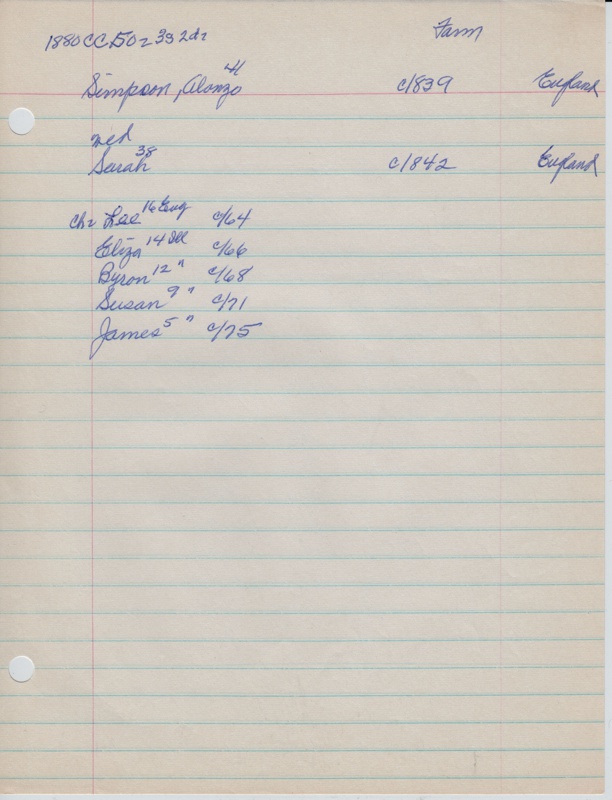 1880 CC 50z 332dr Farm
41
Simpson, Alonzo c/1839 England
med
38
Sarah c/1842 England
Chr Lee 16 Eng c/64
Eliza 14 Ill c/66
Byron 12 " c/68
Susan 9 " c/71
James 5 " c/75